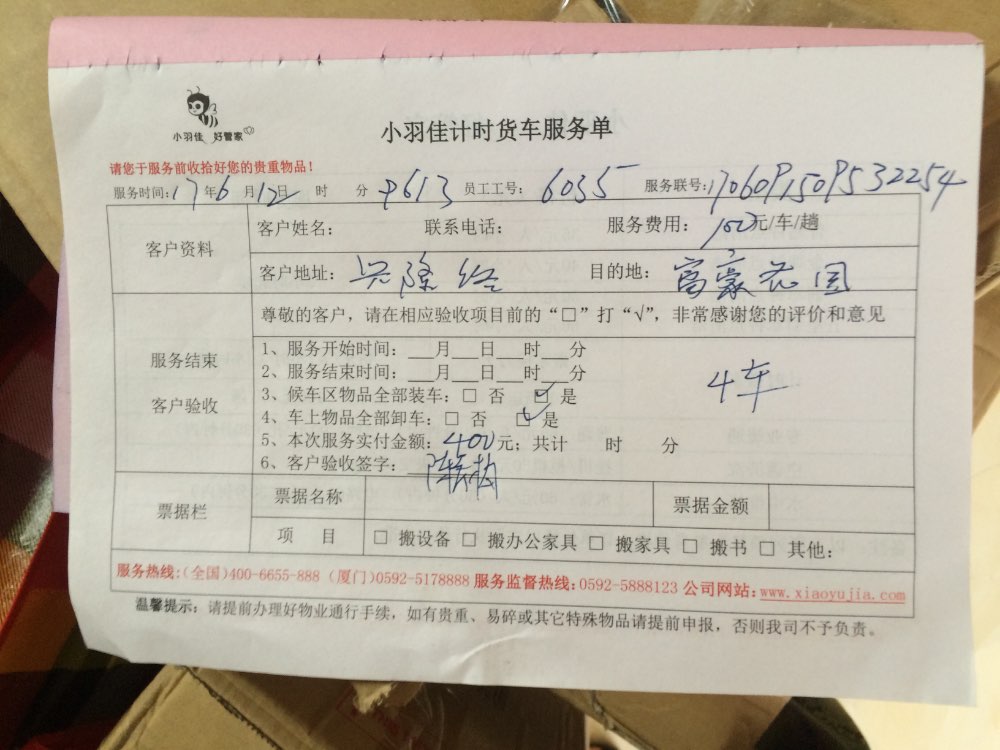 小羽佳 好管家
小羽佳计时货车服务单
请您于服务前收拾好您的贵重物品！
服务时间:17年6月12日 时 分 9613 员工工号: 6035 服务联号: 170609150953225​4
客户资料
客户姓名: 联系电话: 服务费用: 100元/车/趟
客户地址: 兴隆径 目的地: 富豪花园
服务结束
客户验收
尊敬的客户，请在相应验收项目前的“□”打“√”，非常感谢您的评价和意见
1、服务开始时间：___月___日___时___分
2、服务结束时间：___月___日___时___分
3、候车区物品全部装车：□ 否 ☑ 是
4、车上物品全部卸车：□ 否 ☑ 是
4车
5、本次服务实付金额：400元；共计 时 分
6、客户验收签字：
票据栏
票据名称 票据金额
项 目 □ 搬设备 □ 搬办公家具 □ 搬家具 □ 搬书 □ 其他：
服务热线:(全国)400-6655-888 (厦门)0592-5178888 服务监督热线:0592-5888123 公司网站:www.xiaoyujia.com
温馨提示：请提前办理好物业通行手续，如有贵重、易碎或其它特殊物品请提前申报，否则我司不予负责。